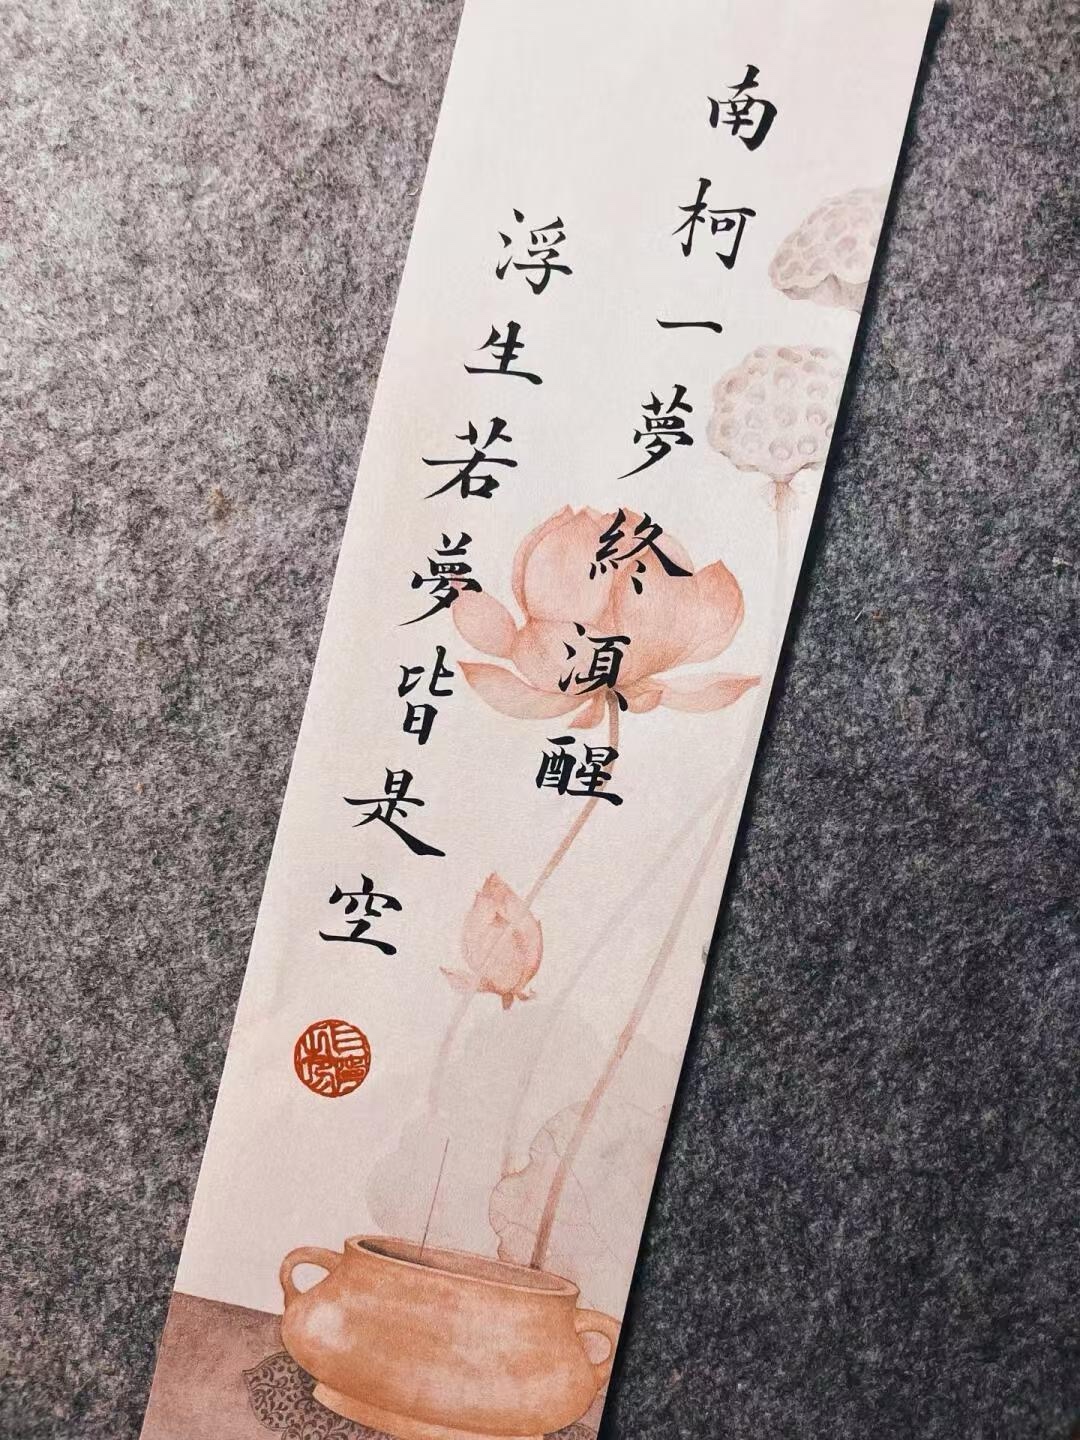 南柯一夢終湏醒
浮生若夢皆是空